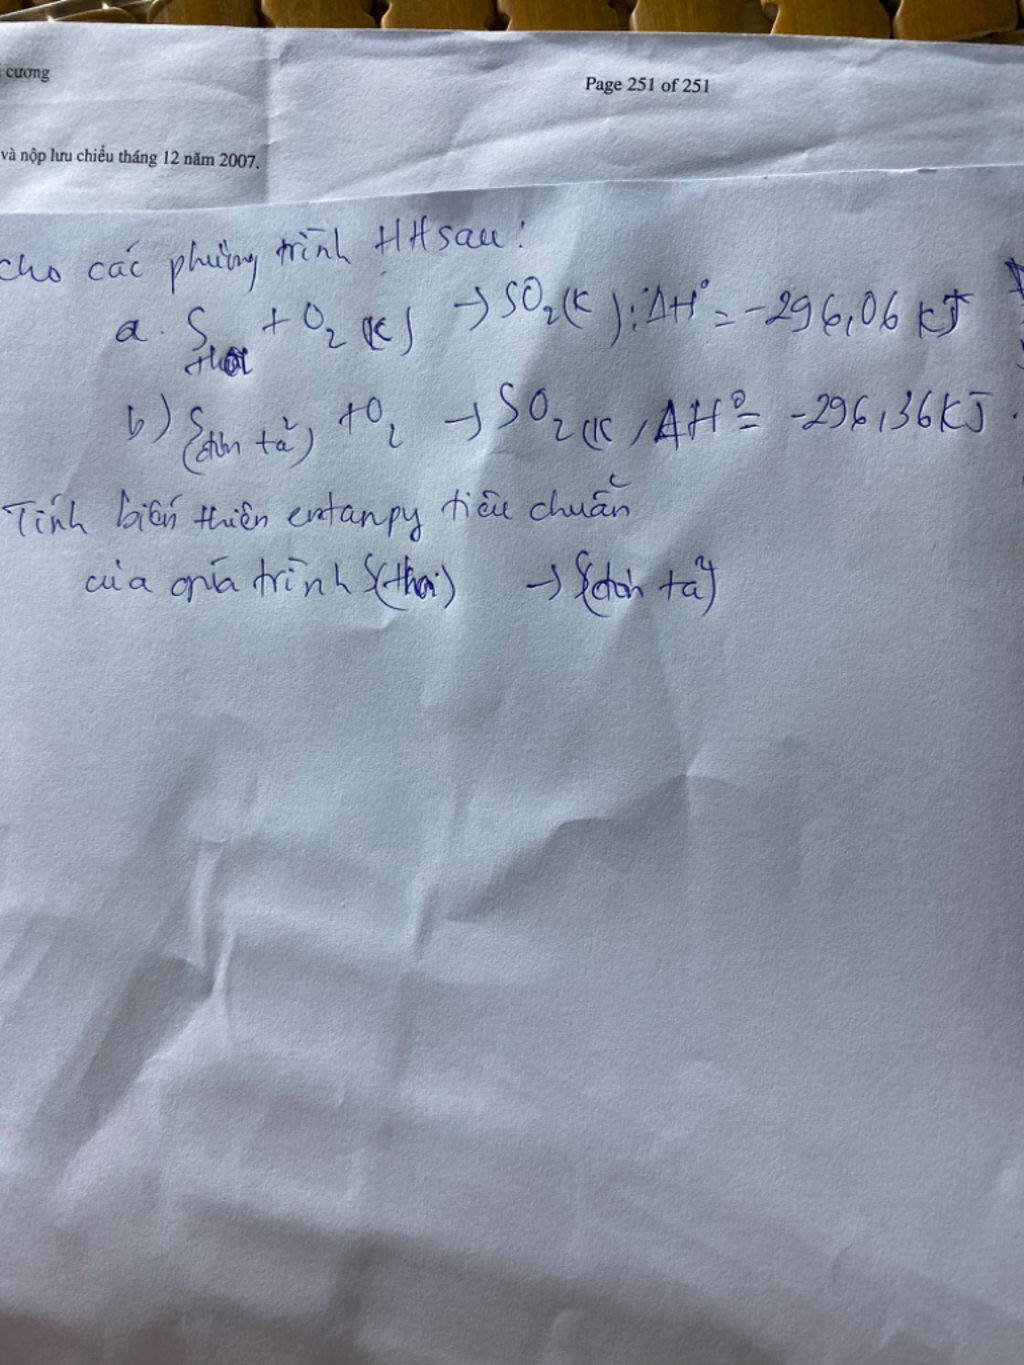 cương
Page 251 of 251
và nộp lưu chiểu tháng 12 năm 2007.
cho các phương trình HH sau:
a. S thoi + O2 (K) → SO2 (K); ΔH° = -296,06 KJ
b) S(đơn tà) + O2 → SO2 (K, ΔH° = -296,36 KJ.
Tính biến thiên entanpy tiêu chuẩn
của quá trình S(thoi) → S(đơn tà)